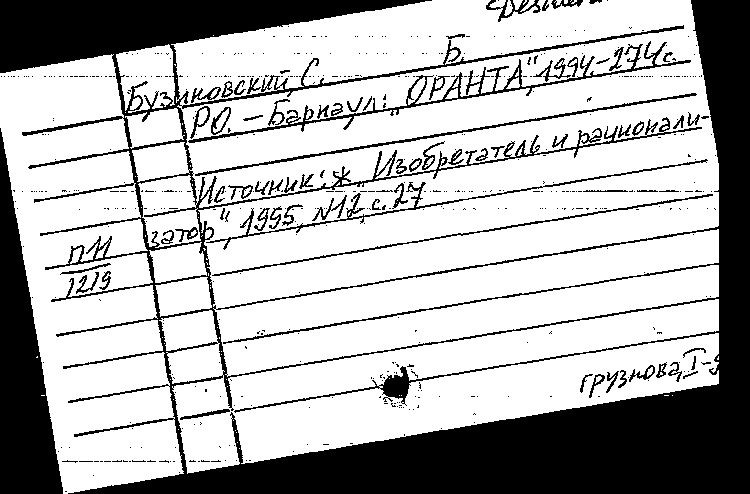 Бузиновский, С. Б.
РО. – Барнаул: „ОРАНТА", 1994.-274с.
Источник: ж. „Изобретатель и рационали-
затор", 1995, N12, с.27
п11
1219
грузнова, I-